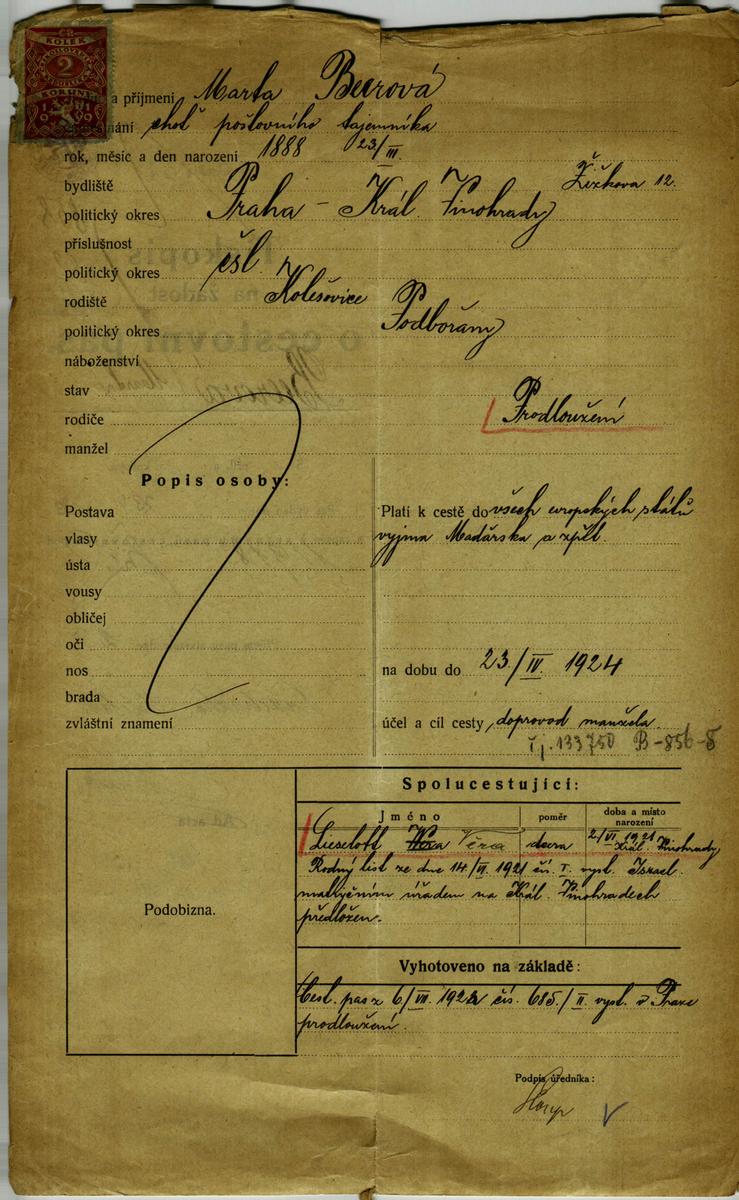 KOLEK
2
KORUNY
a příjmení Marta Beerová
choť poštovního tajemníka
rok, měsíc a den narození 1888 23/III.
bydliště Žižkova 12.
politický okres Praha – Král. Vinohrady
příslušnost
politický okres čsl.
rodiště Kolešovice
politický okres Podbořany
náboženství
stav
rodiče Prodloužení
manžel
Popis osoby:
Postava
vlasy
ústa
vousy
obličej
oči
nos
brada
zvláštní znamení
Platí k cestě do všech evropských států
vyjma Maďarska a zpět.
na dobu do 23./IV. 1924
účel a cíl cesty doprovod manžela.
čj. 133750 B-856-8
Podobizna.
Spolucestující:
Jméno poměr doba a místo narození
Lieselott Věra dcera 2/VI. 1921 Král. Vinohrady
Rodný list ze dne 14/VI. 1921 čís. I. vyst. Israel.
matričním úřadem na Král. Vinohradech
předložen.
Vyhotoveno na základě:
Cest. pas z 6/VII. 1922 čís. 685/II. vyst. v Praze
prodloužení.
Podpis úředníka: